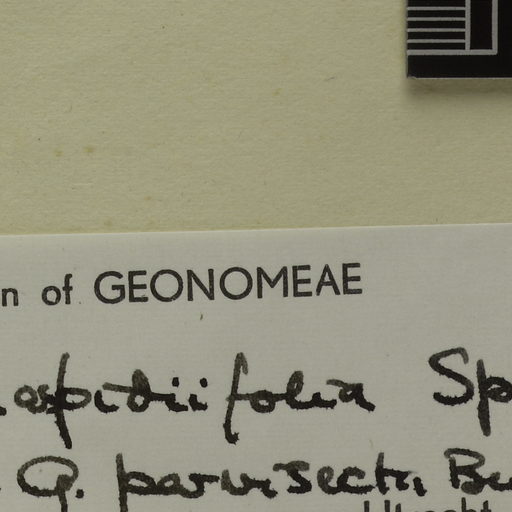 n of GEONOMEAE
aspidiifolia Sp
G. parvisecta Bu
Utrecht